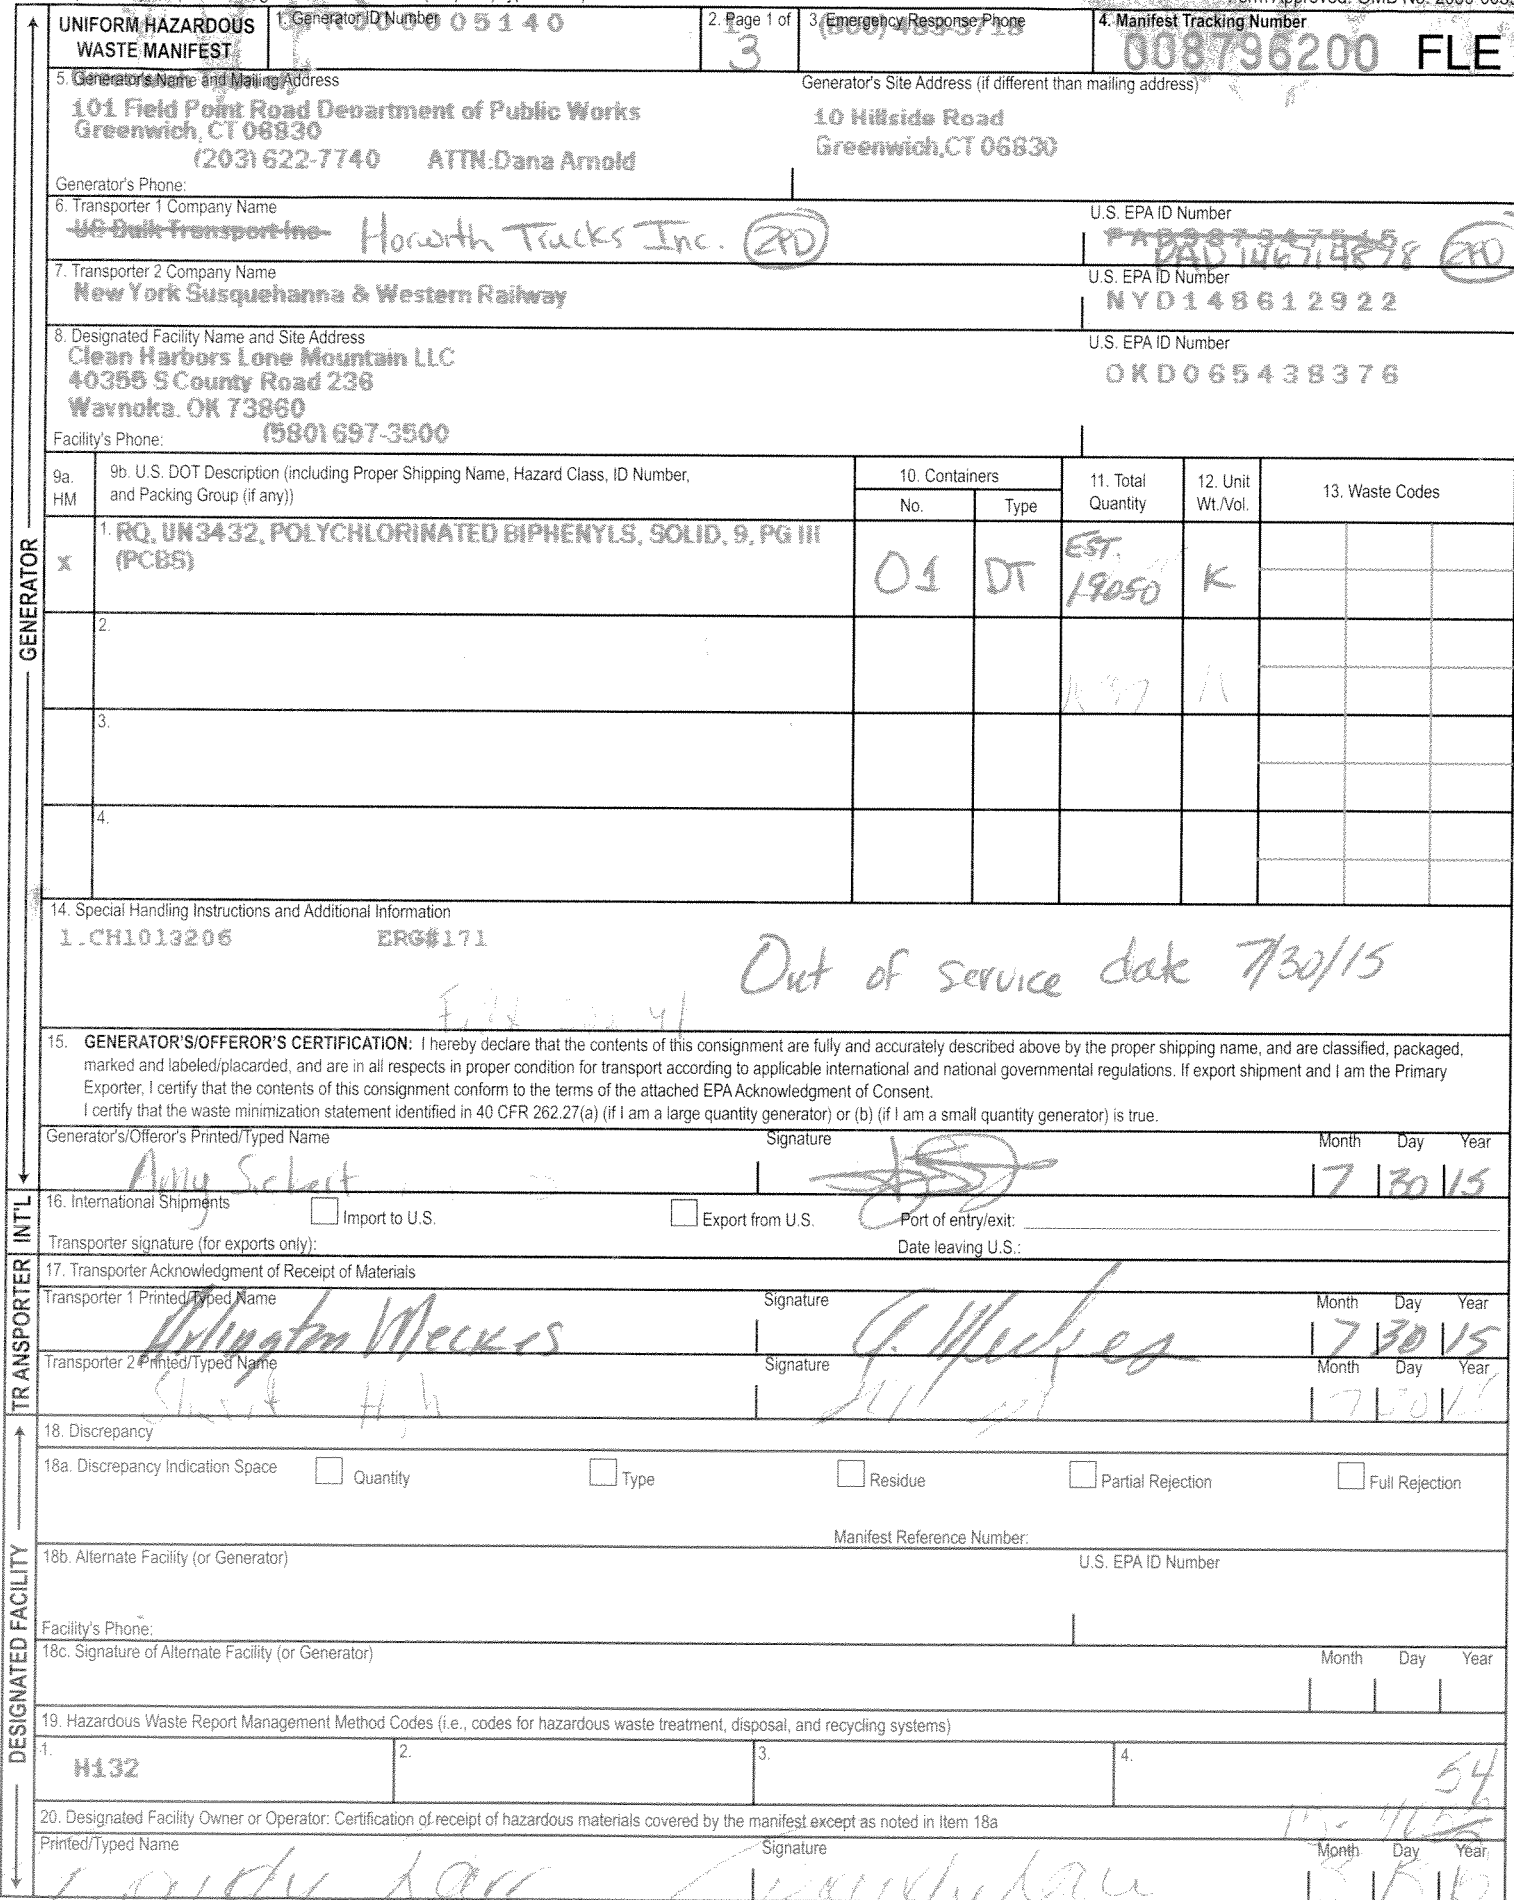 UNIFORM HAZARDOUS WASTE MANIFEST
1. Generator ID Number
005140
2. Page 1 of
3
3. Emergency Response Phone
(800) 483-3718
4. Manifest Tracking Number
008796200 FLE
5. Generator's Name and Mailing Address
Generator's Site Address (if different than mailing address)
101 Field Point Road Department of Public Works
Greenwich, CT 06830
(203) 622-7740 ATTN:Dana Arnold
10 Hillside Road
Greenwich,CT 06830
Generator's Phone:
6. Transporter 1 Company Name
U.S. EPA ID Number
US Bulk Transport Inc Horwith Trucks Inc.
PAD146714878
7. Transporter 2 Company Name
U.S. EPA ID Number
New York Susquehanna & Western Railway
NYD148612922
8. Designated Facility Name and Site Address
U.S. EPA ID Number
Clean Harbors Lone Mountain LLC
40355 S County Road 236
Waynoka. OK 73860
OKD065438376
Facility's Phone: (580) 697-3500
9a. HM
9b. U.S. DOT Description (including Proper Shipping Name, Hazard Class, ID Number,
and Packing Group (if any))
10. Containers
No. Type
11. Total Quantity
12. Unit Wt./Vol.
13. Waste Codes
x
1. RQ, UN3432, POLYCHLORINATED BIPHENYLS, SOLID, 9, PG III
(PCBS)
01 DT EST. 19050 K
2.
3.
4.
14. Special Handling Instructions and Additional Information
1.CH1013206 ERG#171
Out of service date 7/30/15
15. GENERATOR'S/OFFEROR'S CERTIFICATION: I hereby declare that the contents of this consignment are fully and accurately described above by the proper shipping name, and are classified, packaged,
marked and labeled/placarded, and are in all respects in proper condition for transport according to applicable international and national governmental regulations. If export shipment and I am the Primary
Exporter, I certify that the contents of this consignment conform to the terms of the attached EPA Acknowledgment of Consent.
I certify that the waste minimization statement identified in 40 CFR 262.27(a) (if I am a large quantity generator) or (b) (if I am a small quantity generator) is true.
Generator's/Offeror's Printed/Typed Name
Signature
Month Day Year
7 30 15
16. International Shipments
Import to U.S.
Export from U.S.
Port of entry/exit:
Transporter signature (for exports only):
Date leaving U.S.:
17. Transporter Acknowledgment of Receipt of Materials
Transporter 1 Printed/Typed Name
Signature
Month Day Year
Arlington Meckes
A. Meckes
7 30 15
Transporter 2 Printed/Typed Name
Signature
Month Day Year
7 30
18. Discrepancy
18a. Discrepancy Indication Space
Quantity
Type
Residue
Partial Rejection
Full Rejection
Manifest Reference Number:
18b. Alternate Facility (or Generator)
U.S. EPA ID Number
Facility's Phone:
18c. Signature of Alternate Facility (or Generator)
Month Day Year
19. Hazardous Waste Report Management Method Codes (i.e., codes for hazardous waste treatment, disposal, and recycling systems)
1. H132
2.
3.
4.
54
20. Designated Facility Owner or Operator: Certification of receipt of hazardous materials covered by the manifest except as noted in Item 18a
Printed/Typed Name
Signature
Month Day Year
GENERATOR
INT'L
TRANSPORTER
DESIGNATED FACILITY